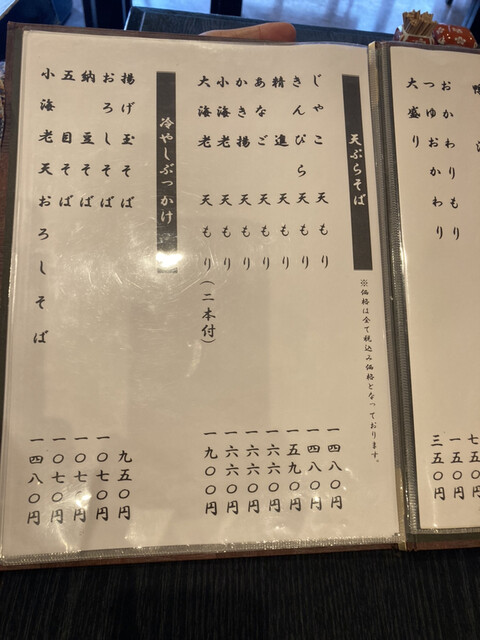 おかわりもり 七五〇
つゆおかわり 一五〇円
大盛り 三五〇円
天ぷらそば
※価格は全て税込み価格となっております。
じゃこ天もり 一四八〇円
きんぴら天もり 一四八〇円
精進天もり 一五九〇円
あなご天もり 一六六〇円
かき揚天もり 一六六〇円
小海老天もり 一六六〇円
大海老天もり(二本付) 一九〇〇円
冷やしぶっかけ
揚げ玉そば 九五〇円
おろしそば 一〇七〇円
納豆そば 一〇七〇円
五目そば 一〇七〇円
小海老天おろしそば 一四八〇円